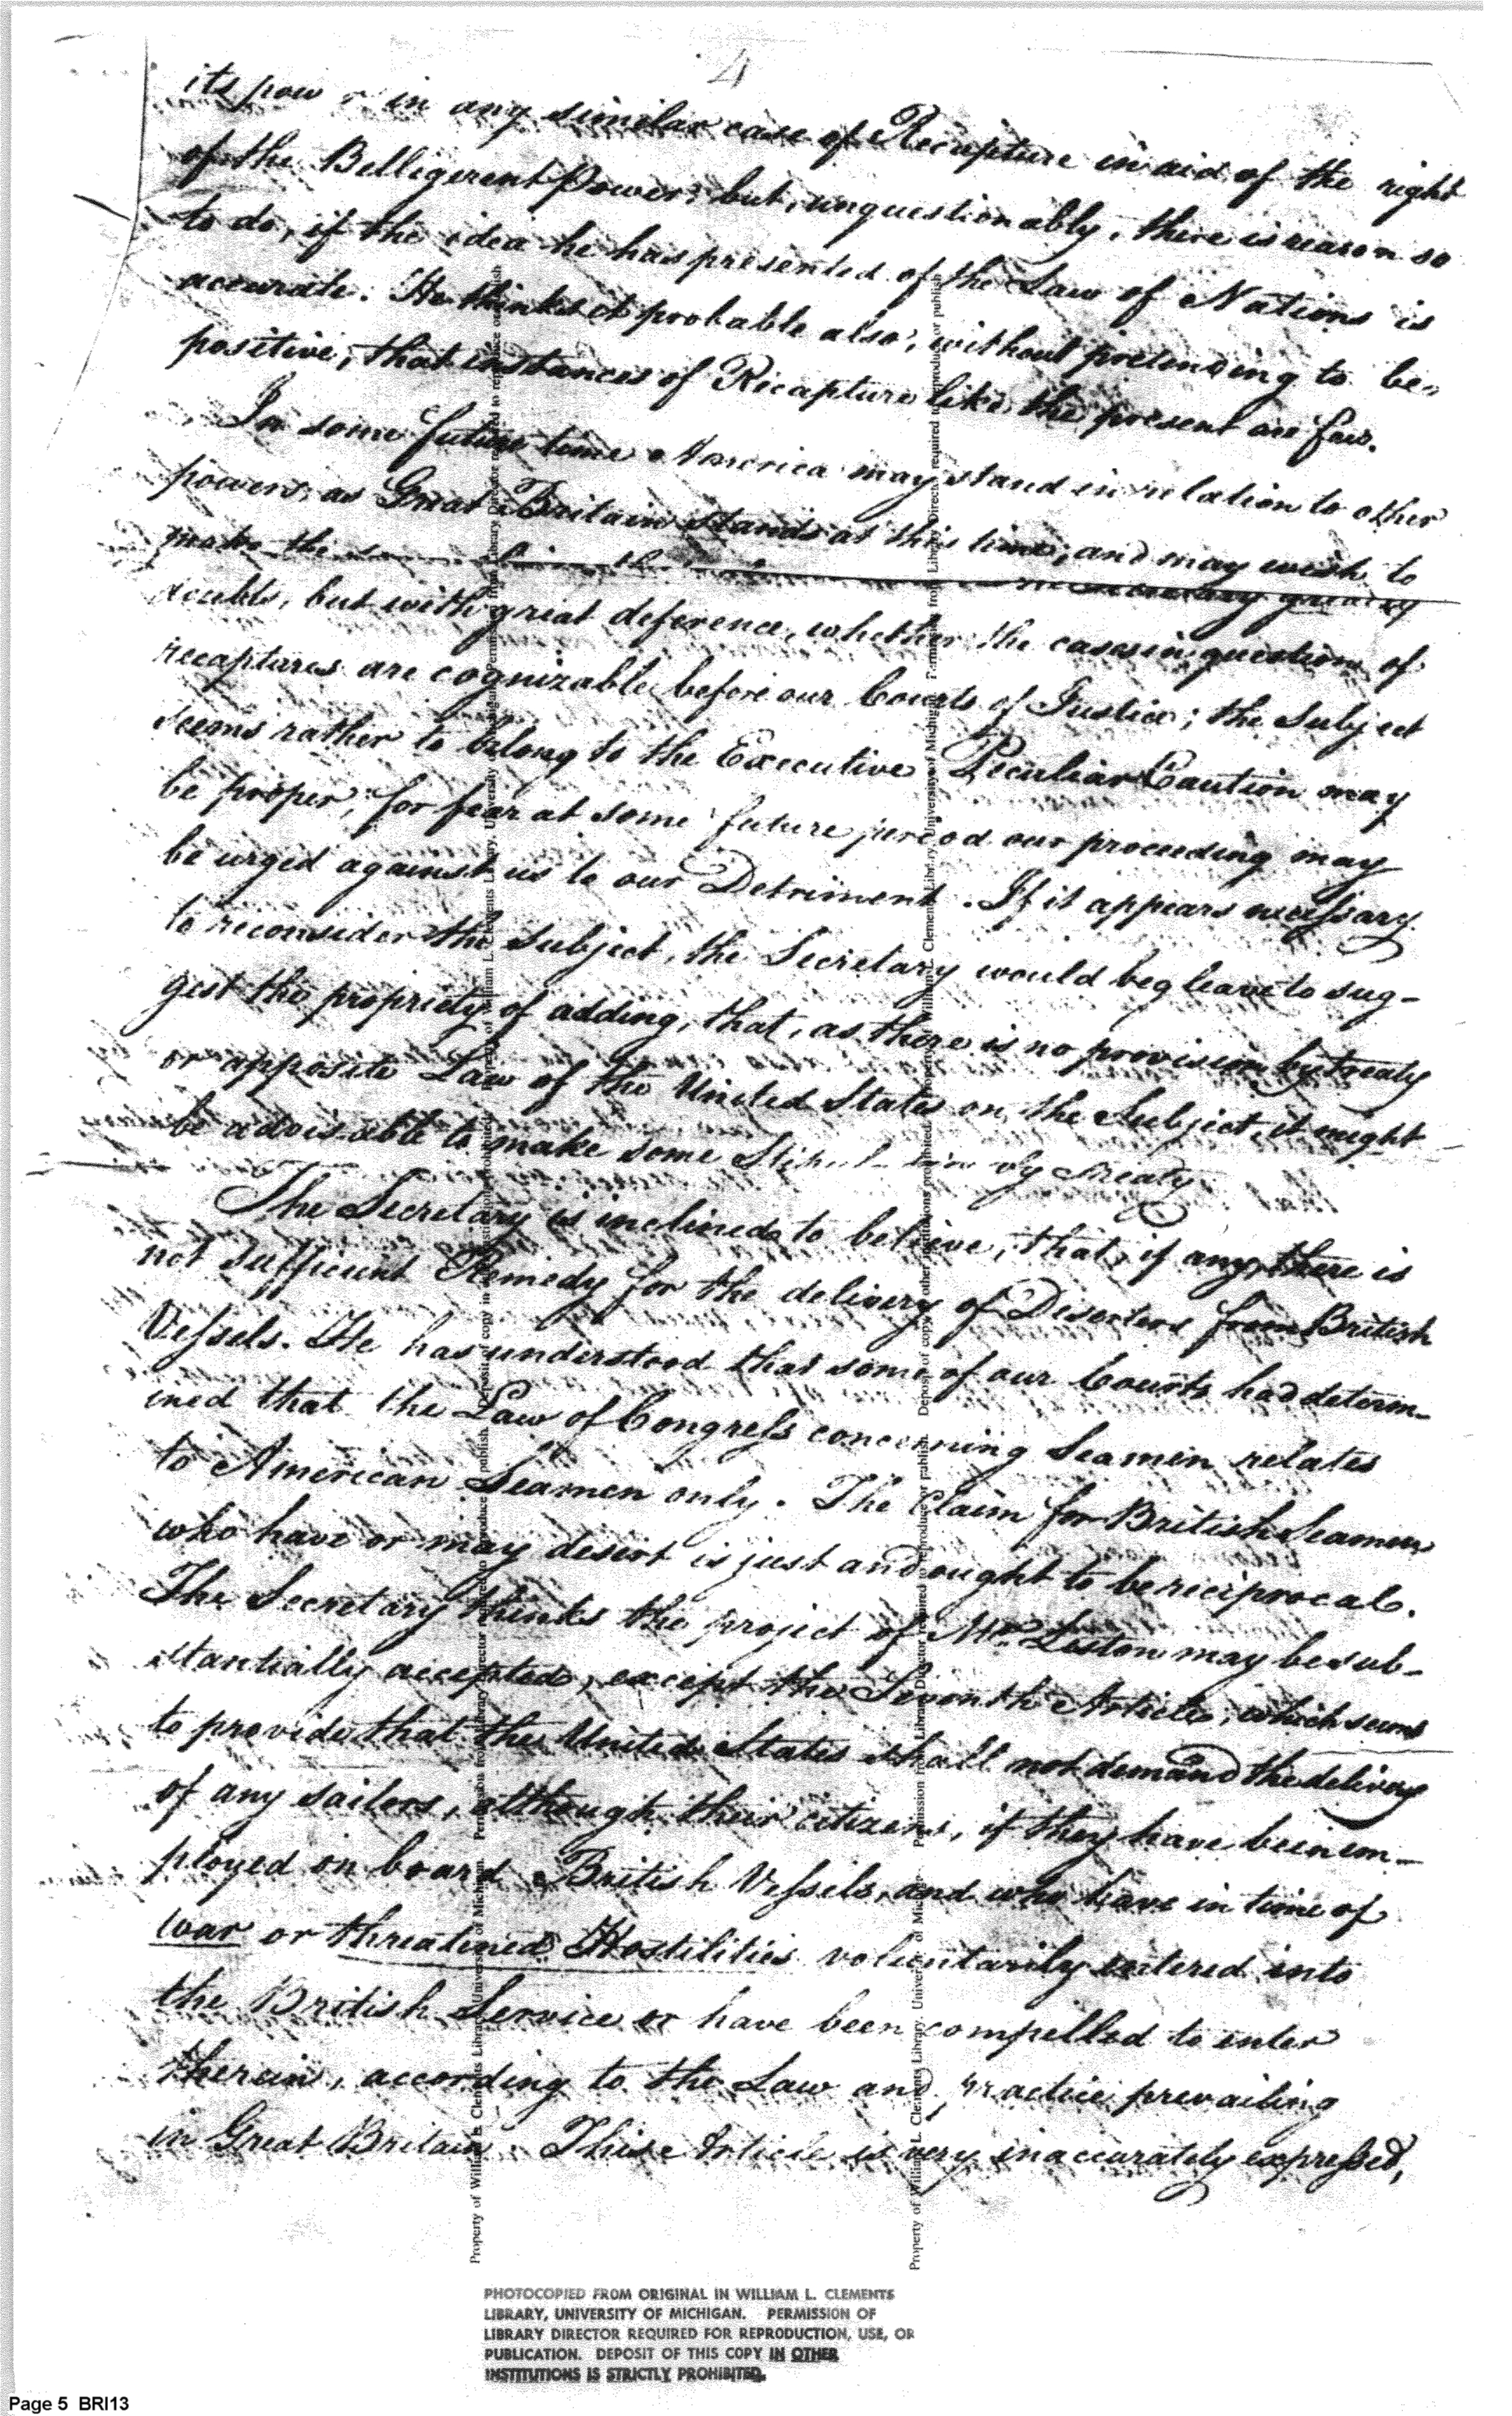 4
its pow r in any similar case of Recapture in aid of the right
of the Belligerent Power; but, unquestionably, there is reason so
to do, if the idea he has presented of the Law of Nations is
accurate. He thinks it probable also, without pretending to be
positive, that instances of Recapture like the present are few.
In some future time America may stand in relation to other
powers, as Great Britain stands at this time, and may wish to
make the
doubts, but with great deference, whether the cases in question of
recaptures are cognizable before our Courts of Justice; the Subject
seems rather to belong to the Executive. Peculiar Caution may
be proper, for fear at some future period our proceeding may
be urged against us to our Detriment. If it appears necessary
to reconsider the Subject, the Secretary would beg leave to sug-
gest the propriety of adding, that, as there is no provision by treaty
or apposite Law of the United States on the Subject, it might
be advisable to make some by Treaty
The Secretary is inclined to believe, that, if any, there is
not sufficient Remedy for the delivery of Deserters from British
Vessels. He has understood that some of our Courts had determ-
ined that the Law of Congress concerning Seamen relates
to American Seamen only. The Claim for British Seamen
who have or may desert is just and ought to be reciprocal.
The Secretary thinks the project of Mr. Liston may be sub-
stantially accepted, except the Seventh Article, which seems
to provide that the United States shall not demand the delivery
of any sailors, although their citizens, if they have been em-
ployed on board British Vessels, and who have in time of
war or threatened Hostilities voluntarily entered into
the British Service or have been compelled to enter
therein, according to the Law and practice prevailing
in Great Britain. This Article is very inaccurately expressed,
Property of William L. Clements Library, University of Michigan. Permission from Library Director required to reproduce or publish. Deposit of copy in other institutions prohibited.
Property of William L. Clements Library, University of Michigan. Permission from Library Director required to reproduce or publish. Deposit of copy in other institutions prohibited.
PHOTOCOPIED FROM ORIGINAL IN WILLIAM L. CLEMENTS
LIBRARY, UNIVERSITY OF MICHIGAN. PERMISSION OF
LIBRARY DIRECTOR REQUIRED FOR REPRODUCTION, USE, OR
PUBLICATION. DEPOSIT OF THIS COPY IN OTHER
INSTITUTIONS IS STRICTLY PROHIBITED.
Page 5 BRI13